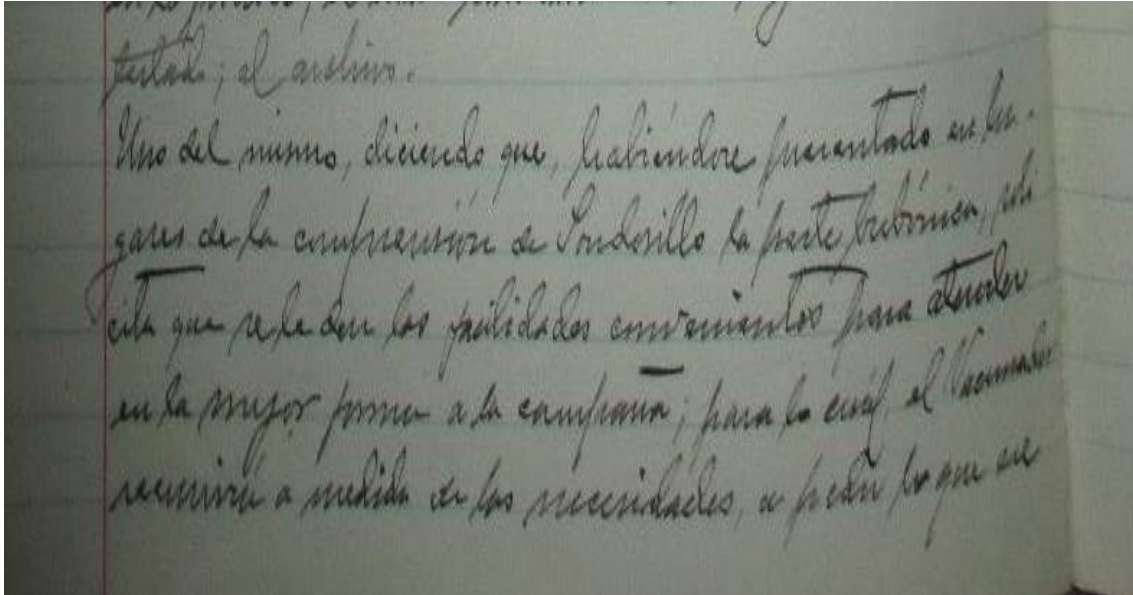 testado; al archivo.
Uno del mismo, diciendo que, habiéndose presentado en lu-
gares de la comprensión de Sondorillo la peste bubónica, soli
cita que se le den las facilidades convenientes para atender
en la mejor forma a la campaña; para lo cuál, el Vacunador
recurrirá a medida de las necesidades, a pedir lo que se